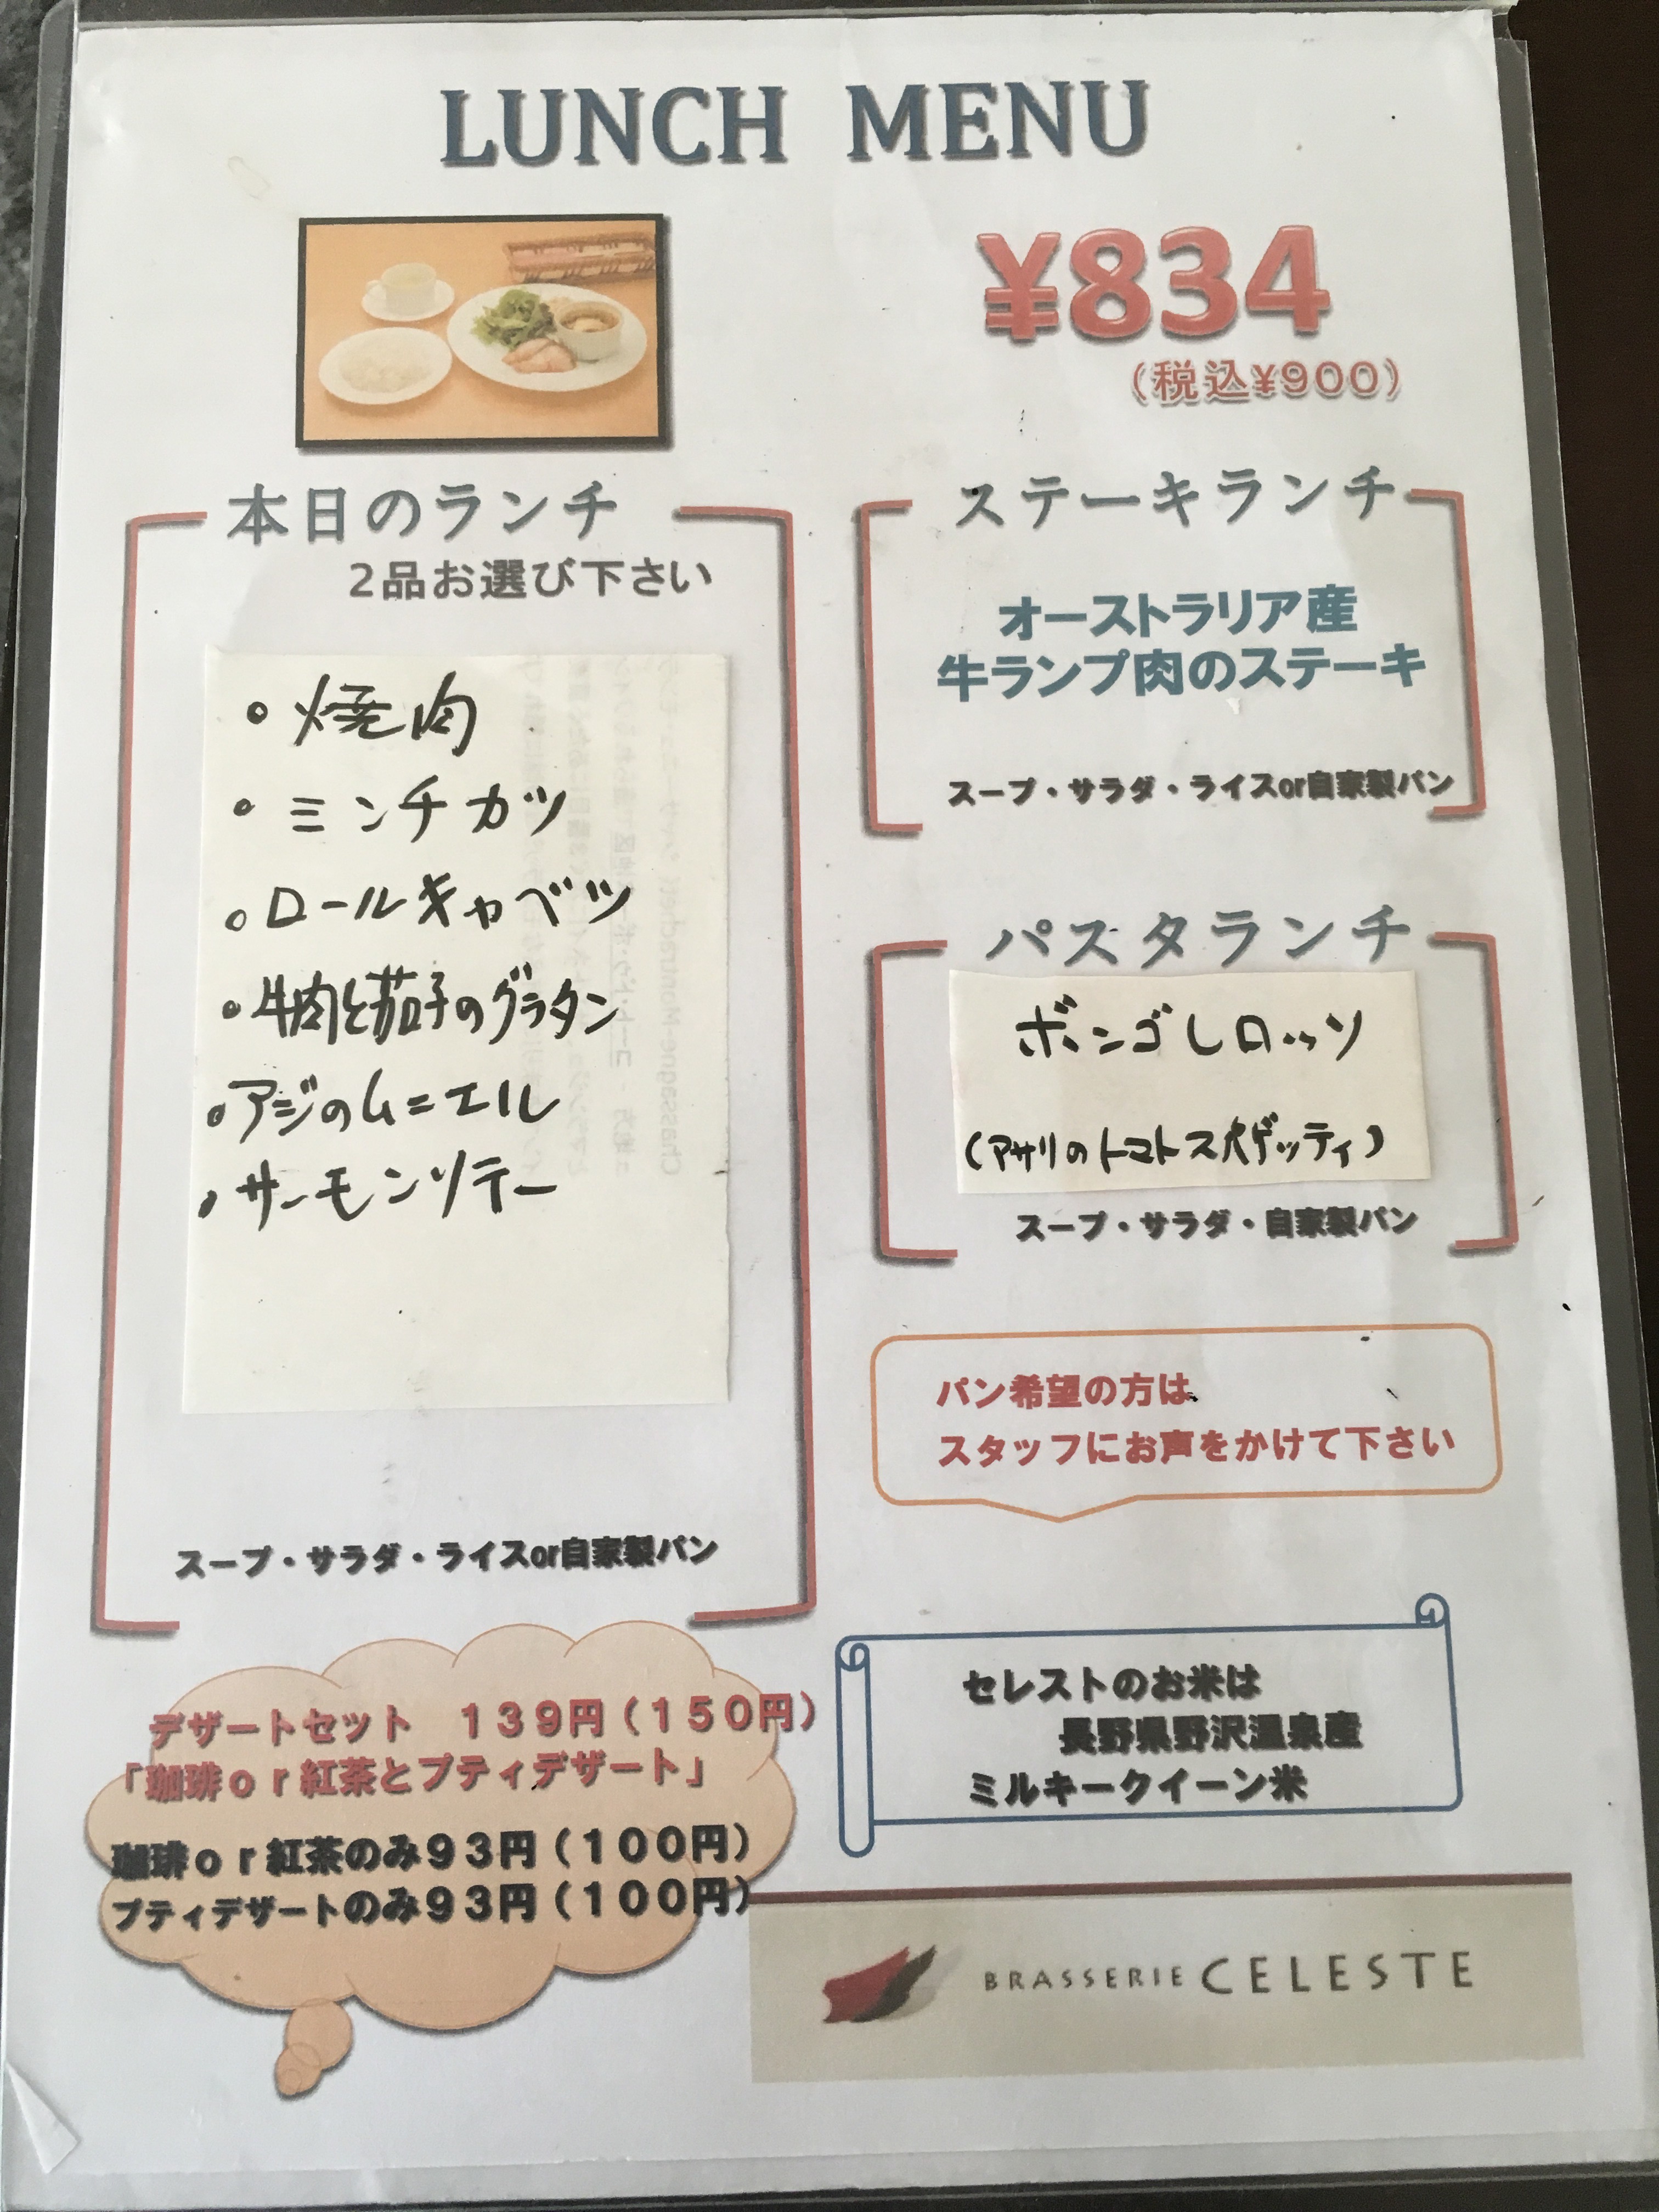 LUNCH MENU
¥834
（税込¥900）
本日のランチ
2品お選び下さい
・焼肉
・ミンチカツ
・ロールキャベツ
・牛肉と茄子のグラタン
・アジのムニエル
・サーモンソテー
スープ・サラダ・ライスor自家製パン
ステーキランチ
オーストラリア産
牛ランプ肉のステーキ
スープ・サラダ・ライスor自家製パン
パスタランチ
ボンゴレロッソ
(アサリのトマトスパゲッティ)
スープ・サラダ・自家製パン
パン希望の方は
スタッフにお声をかけて下さい
デザートセット　１３９円（１５０円）
「珈琲ｏｒ紅茶とプティデザート」
珈琲ｏｒ紅茶のみ９３円（１００円）
プティデザートのみ９３円（１００円）
セレストのお米は
長野県野沢温泉産
ミルキークイーン米
BRASSERIE CELESTE